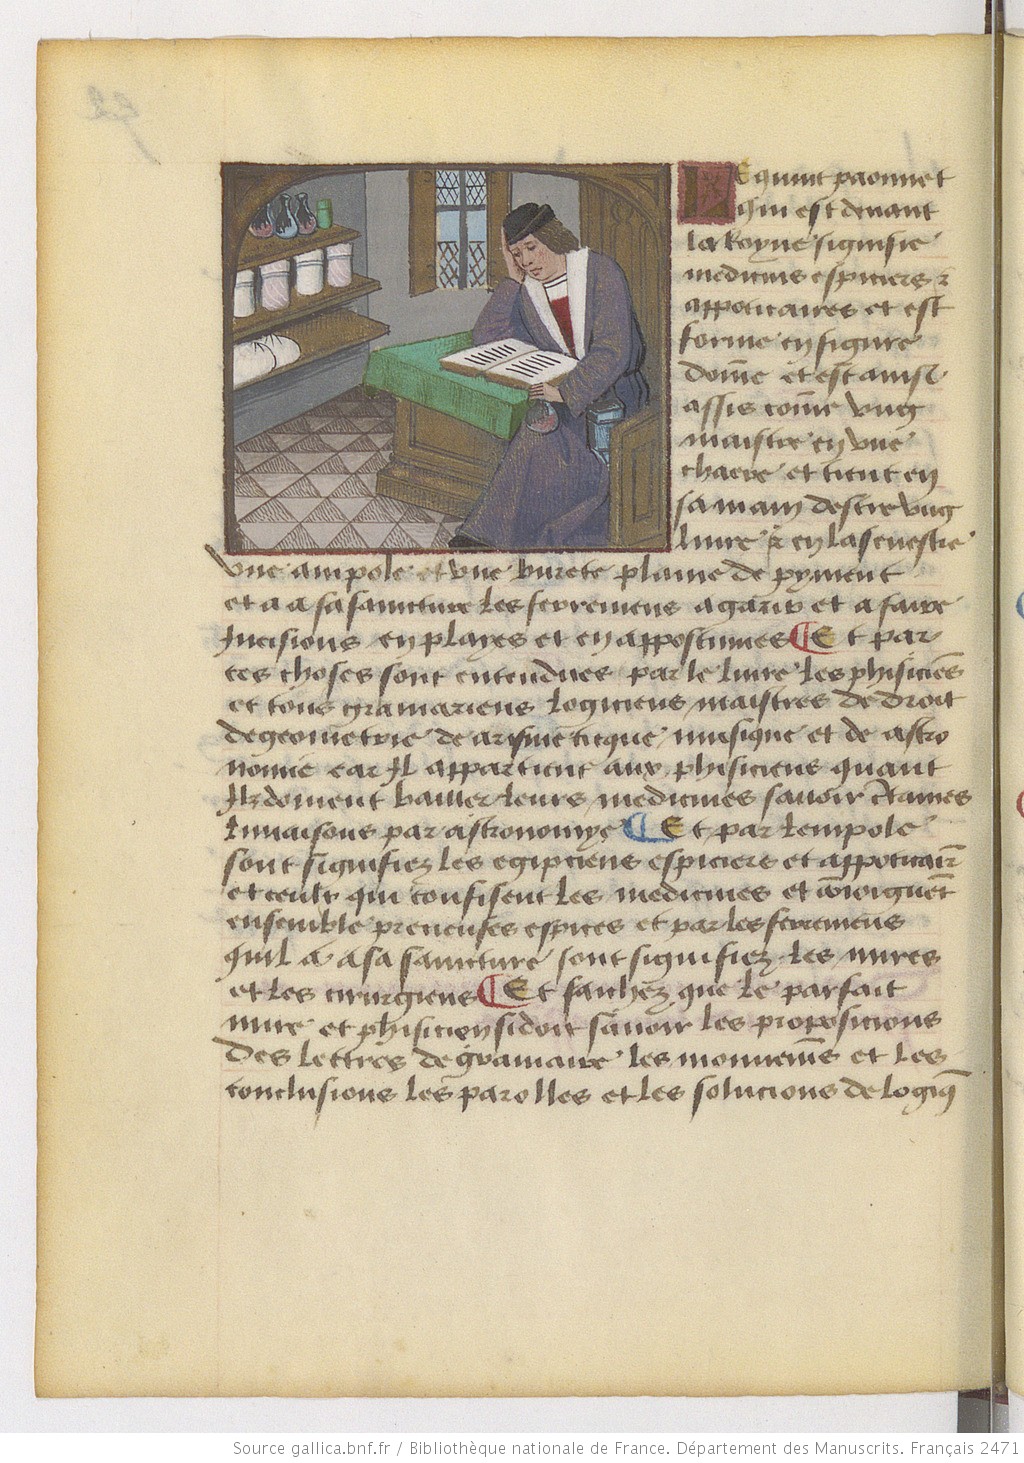 LE quint paonnet
qui est devant
la Royne signifie
medicins espiciers et
appoticaires et est
forme en figure
dome et est ainsi
assis come ung
maistre en une
chaere et tient en
sa main destre ung
livre et en la senestre
une ampole et une burete plaine de pyment
et a a sa sainture les ferremens a garir et a faire
Incisions en playes et en appostumes Et par
ces choses sont entendues par le livre les phisiciens
et tous gramariens logiciens maistres de droit
de geometrie de arismeticque musique et de astro
nomie car Il appartient aux phisiciens quant
Ilz doivent bailler leurs medicines savoir certaines
lunaisons par astronomye Et par lempole
sont signifiez les egipciens espiciers et appoticair
et ceulx qui confisent les medicines et
ensemble precieuses espices et par les ferremens
quil a a sa sainture sont signifiez les mires
et les cirurgiens Et sachez que le parfait
mire et phisicien si doit savoir les proposicions
des lettres de gramaire les et les
conclusions les parolles et les solucions de logiq
Source gallica.bnf.fr / Bibliothèque nationale de France. Département des Manuscrits. Français 2471